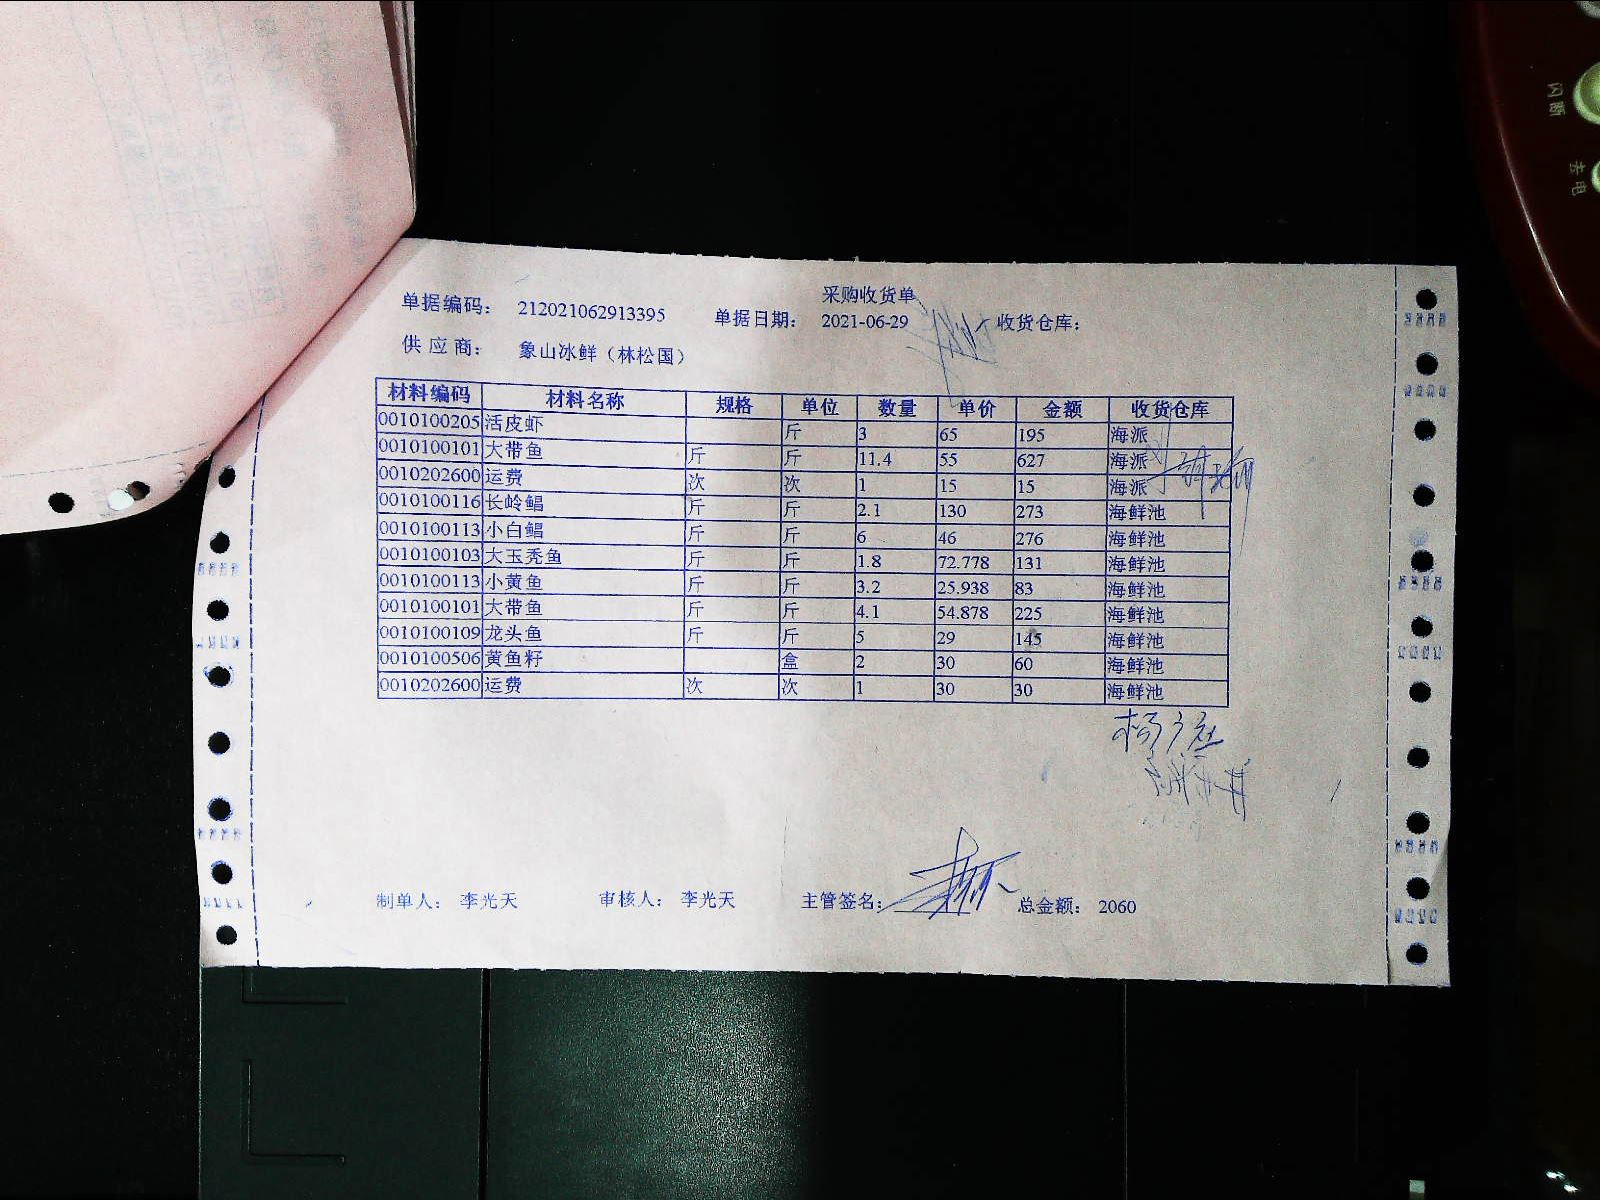 采购收货单
单据编码： 212021062913395 单据日期： 2021-06-29 收货仓库：
供 应 商： 象山冰鲜（林松国）
材料编码 材料名称 规格 单位 数量 单价 金额 收货仓库
0010100205 活皮虾 斤 3 65 195 海派
0010100101 大带鱼 斤 斤 11.4 55 627 海派
0010202600 运费 次 次 1 15 15 海派
0010100116 长岭鲳 斤 斤 2.1 130 273 海鲜池
0010100113 小白鲳 斤 斤 6 46 276 海鲜池
0010100103 大玉秃鱼 斤 斤 1.8 72.778 131 海鲜池
0010100113 小黄鱼 斤 斤 3.2 25.938 83 海鲜池
0010100101 大带鱼 斤 斤 4.1 54.878 225 海鲜池
0010100109 龙头鱼 斤 斤 5 29 145 海鲜池
0010100506 黄鱼籽 盒 2 30 60 海鲜池
0010202600 运费 次 次 1 30 30 海鲜池
制单人： 李光天 审核人： 李光天 主管签名： 总金额： 2060
闪断
去电